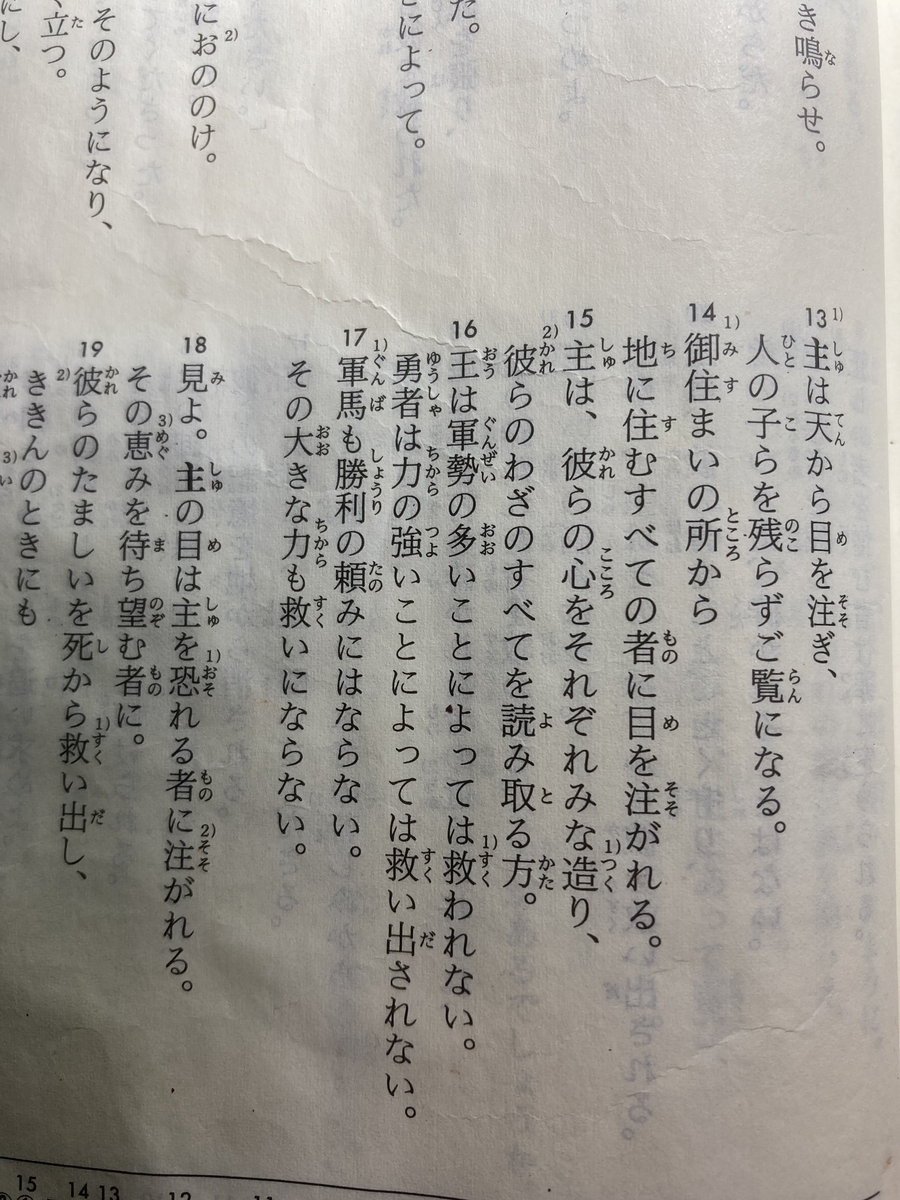 き鳴らせ。
た。
とによって。
におののけ。
そのようになり、
、立つ。
にし、
13 主は天から目を注ぎ、
人の子らを残らずご覧になる。
14 御住まいの所から
地に住むすべての者に目を注がれる。
15 主は、彼らの心をそれぞれみな造り、
彼らのわざのすべてを読み取る方。
16 王は軍勢の多いことによっては救われない。
勇者は力の強いことによっては救い出されない。
17 軍馬も勝利の頼みにはならない。
その大きな力も救いにならない。
18 見よ。主の目は主を恐れる者に注がれる。
その恵みを待ち望む者に。
19 彼らのたましいを死から救い出し、
ききんのときにも
15 14 13 12 11